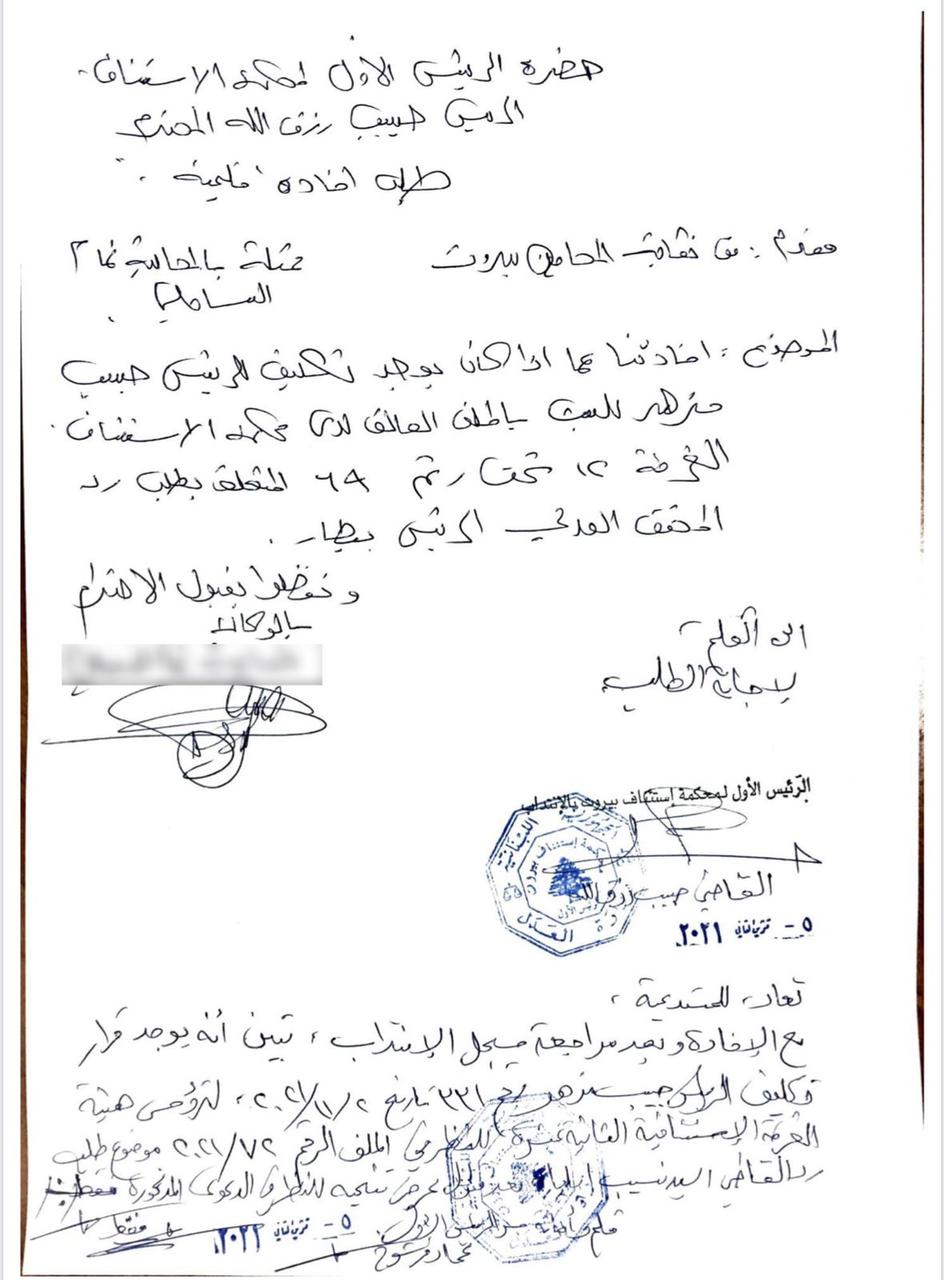 حضرة الرئيس الأول لمحكمة الاستئناف
الرئيس حبيب رزق الله المحترم
طلب افادة قلمية
مقدم: من نقابة المحامين بيروت ممثلة بالمحامية
الموضوع: افادتنا عما اذا كان يوجد تكليف للرئيس حبيب
مزهر للبت بالملف العالق لدى محكمة الاستئناف
الغرفة ١٢ تحت رقم ٦٩ المتعلق بطلب رد
المحقق العدلي الرئيس بيطار.
وتفضلوا بقبول الاحترام
بالوكالة
الى القلم
لاجابة الطلب
الرئيس الأول لمحكمة إستئناف بيروت بالإنتداب
القاضي حبيب رزق الله
٥ - تشرين الثاني ٢٠٢١
تعاد للمستدعية،
مع الإفادة وبعد مراجعة سجل الإنتداب، تبين أنه يوجد قرار
تكليف الرئيس حبيب مزهر رقم ٣٣١ تاريخ ٢٠٢١/١١/٢، لترؤس هيئة
الغرفة الإستئنافية الثانية عشرة للنظر في الملف الرقم ٢٠٢١/٧٢ موضوع طلب
رد القاضي السيد نسيب إيليا تنحيه للنظر في الدعوى المذكورة
فقط
٥ - تشرين الثاني ٢٠٢١